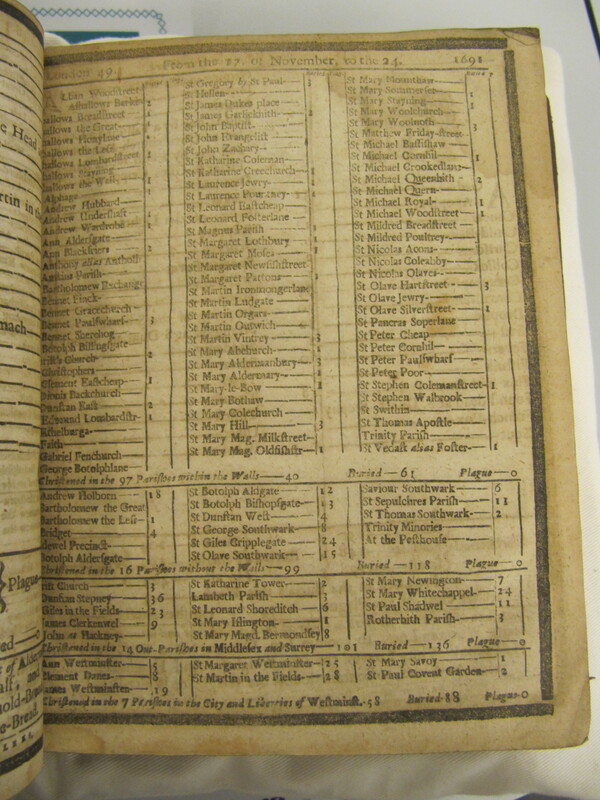 London 49. From the 17. of November, to the 24. 1691
Lban Woodstreet
Alhallows Barkin 2
allows Breadstreet
allows the Great
allows Honylane
allows the Less
allows Lumbardstreet
allows Staining
allows the Wall 1
Alphage
Andrew Hubbard
Andrew Undershaft
Andrew Wardrobe
Ann Aldersgate
Ann Blackfriers 2
Anthony alias Antholi
Austins Parish
Bartholomew Exchange
Bennet Finck
Bennet Gracechurch
Bennet Paulswharf 3
Bennet Sherehog
Botolph Billingsgate
rist's Church 2
Christophers
Clement Eastcheap 1
Dionis Backchurch
Dunstan East 2
Edmund Lombardstr 1
Ethelburga
Faith
Gabriel Fenchurch
George Botolphlane
St Gregory by St Paul 3
St Hellen
St James Dukes place
St James Garlickhith
St John Baptist
St John Evangelist
St John Zachary
St Katharine Coleman
St Katharine Creechurch
St Laurence Jewry
St Laurence Pountney
St Leonard Eastcheap
St Leonard Fosterlane
St Magnus Parish
St Margaret Lothbury
St Margaret Moses
St Margaret Newfishstreet
St Margaret Pattons
St Martin Ironmongerlane
St Martin Ludgate
St Martin Orgars
St Martin Outwich
St Martin Vintrey 3
St Mary Abchurch 1
St Mary Aldermanbury 3
St Mary Aldermary 1
St Mary-le-Bow 1
St Mary Bothaw
St Mary Colechurch
St Mary Hill 3
St Mary Mag. Milkstreet
St Mary Mag. Oldfishstr 1
St Mary Mounthaw
St Mary Sommerset
St Mary Stayning
St Mary Woolchurch
St Mary Woolnoth
St Matthew Friday-street
St Michael Bassishaw
St Michael Cornhil
St Michael Crookedlane
St Michael Queenhith 2
St Michael Quern
St Michael Royal 1
St Michael Woodstreet 1
St Mildred Breadstreet
St Mildred Poultrey
St Nicolas Acons
St Nicolas Coleabby
St Nicolas Olaves
St Olave Hartstreet 3
St Olave Jewry
St Olave Silverstreet 1
St Pancras Soperlane
St Peter Cheap
St Peter Cornhil
St Peter Paulswharf
St Peter Poor
St Stephen Colemanstreet 1
St Stephen Walbrook
St Swithin
St Thomas Apostle
Trinity Parish
St Vedast alias Foster 1
Christened in the 97 Parishes within the Walls 40 Buried 61 Plague 0
Andrew Holborn 18
Bartholomew the Great
Bartholomew the Less 1
Bridget 4
dewel Precinct
Botolph Aldersgate
St Botolph Aldgate 12
St Botolph Bishopsgate
St Dunstan West 4
St George Southwark 8
St Giles Cripplegate 24
St Olave Southwark 15
Saviour Southwark 6
St Sepulchres Parish 11
St Thomas Southwark 2
Trinity Minories
At the Pesthouse
Christened in the 16 Parishes without the Walls 99 Buried 118 Plague 0
rist Church 3
Dunstan Stepney 36
Giles in the Fields 23
James Clerkenwel 9
John at Hackney
St Katharine Tower 2
Lambeth Parish 3
St Leonard Shoreditch 6
St Mary Islington 1
St Mary Magd. Bermondsey 8
St Mary Newington 7
St Mary Whitechappel 24
St Paul Shadwel 11
Rotherbith Parish 3
Christened in the 14 Out-Parishes in Middlesex and Surrey 101 Buried 136 Plague 0
Ann Westminster 5
Clement Danes 8
James Westminster 19
St Margaret Westminster 25
St Martin in the Fields 28
St Mary Savoy 1
St Paul Covent Garden 2
Christened in the 7 Parishes in the City and Liberties of Westminst. 58 Buried 88 Plague 0